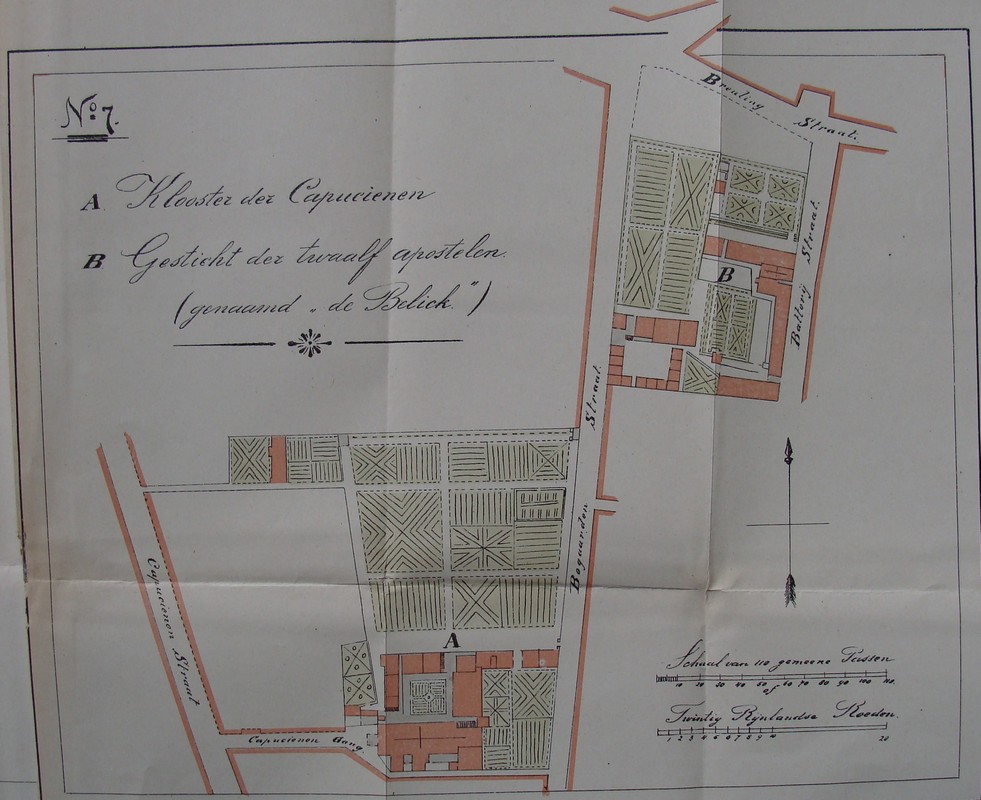 No. 7.
A Klooster der Capucienen
B Gesticht der twaalf apostelen.
(genaamd „de Belick.”)
Breuling Straat.
Battery Straat.
B
Bogaarden Straat.
Capucienen Straat
A
Capucienen Gang
Schaal van 110 gemeene Passen
10 20 30 40 50 60 70 80 90 100 110
of
Twintig Rynlandse Roeden.
1 2 3 4 5 6 7 8 9 10 20